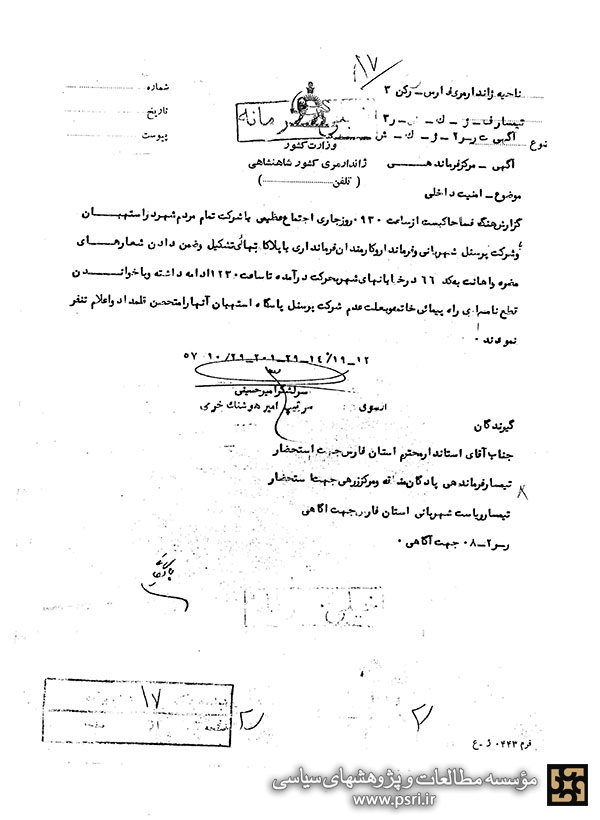 ۱۷
ناحیه ژاندارمری فارس - رکن ۳
شماره
تیمسار ف - ژ - ك - ش - ر۳
تاریخ
محرمانه
آگهی ت ر - ر۲ - ژ - ك - ش
نوع
پیوست
وزارت کشور
آگهی - مرکز فرماندهی
ژاندارمری کشور شاهنشاهی
( تلفن )
موضوع - امنیت داخلی
گزارش هنگ فسا حاکیست از ساعت ۰۹۳۰ روز جاری اجتماع عظیمی با شرکت تمام مردم شهر در استهبان
وشرکت پرسنل شهربانی و فرماندار و کارمندان فرمانداری با پلاکاتهائی تشکیل وضمن دادن شعارهای
مضره واهانت به کد ۶۶ در خیابانهای شهر بحرکت درآمده تا ساعت ۱۲۳۰ ادامه داشته وبا خواندن
قطع نامه راه پیمائی خاتمه وبعلت عدم شرکت پرسنل پاسگاه استهبان آنها را متحصن قلمداد واعلام تنفر
نمودند ۰
۱۲_۱۹/۱۴_۲۹_۲۰۱_۲۹/۱۰_۵۷
سرلشگر امیرحسینی
ازسوی : سرتیپ امیرهوشنگ خرمی
گیرندگان
جناب آقای استاندار محترم استان فارس جهت استحضار
تیمسار فرماندهی پادگان منطقه ومرکز زرهی جهت استحضار
تیمسار ریاست شهربانی استان فارس جهت آگاهی
ر ر ۲-۰۸ جهت آگاهی ۰
۱۷
صفحه از صفحه
فرم ۰۴۴۳ ژ.ع
مؤسسه مطالعات و پژوهشهای سیاسی
www.psri.ir